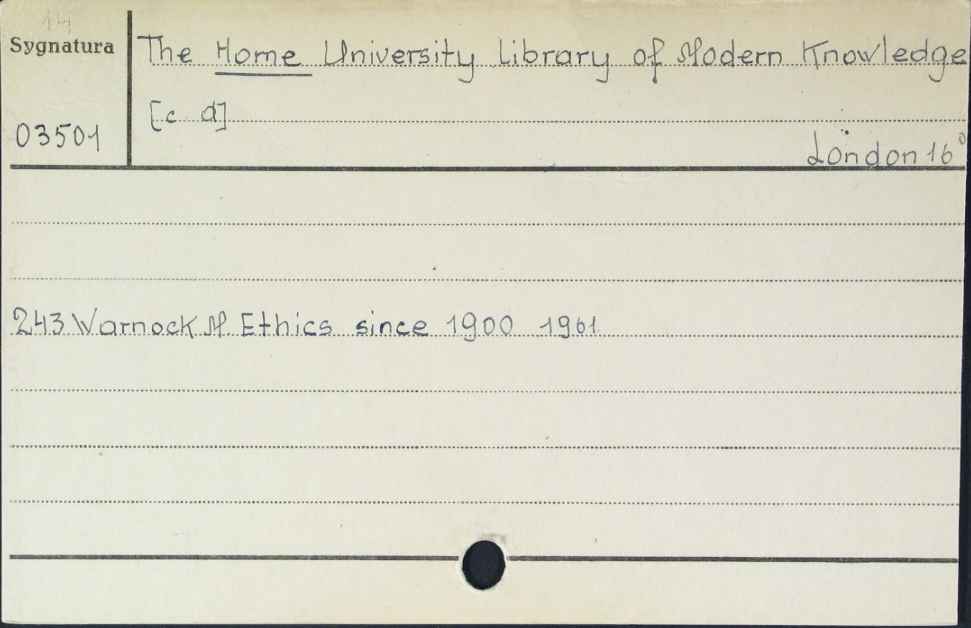 14
Sygnatura
The Home University Library of Modern Knowledge
[c d]
03501
London 16°
243 Warnock M Ethics since 1900 1961